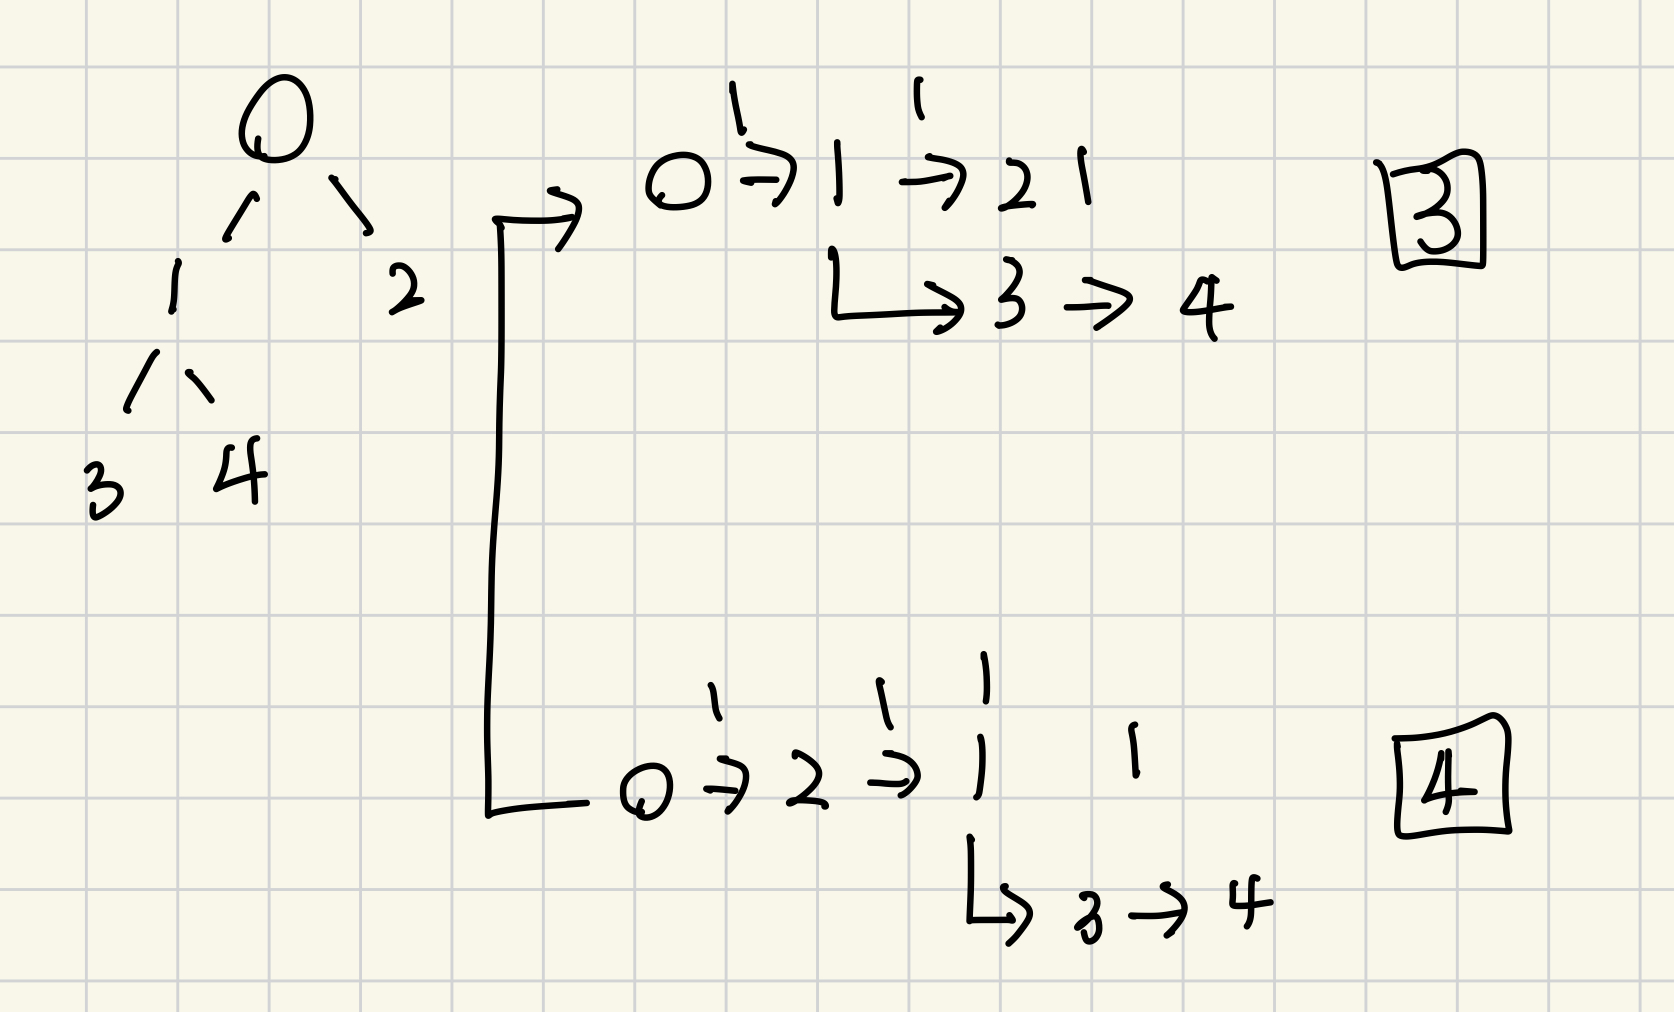 0
1 2
3 4
1 1
0 → 1 → 2 1
3 → 4
3
1 1 1
0 → 2 → 1 1
3 → 4
4